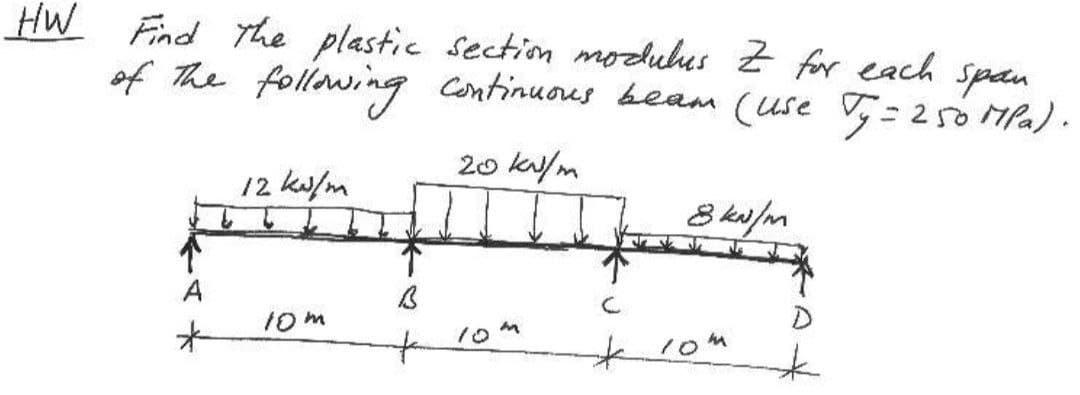 HW Find The plastic section modulus Z for each span
of The following Continuous beam (use σy = 250 MPa).
20 kN/m
12 kN/m
8 kN/m
A B C D
10 m 10 m 10 m